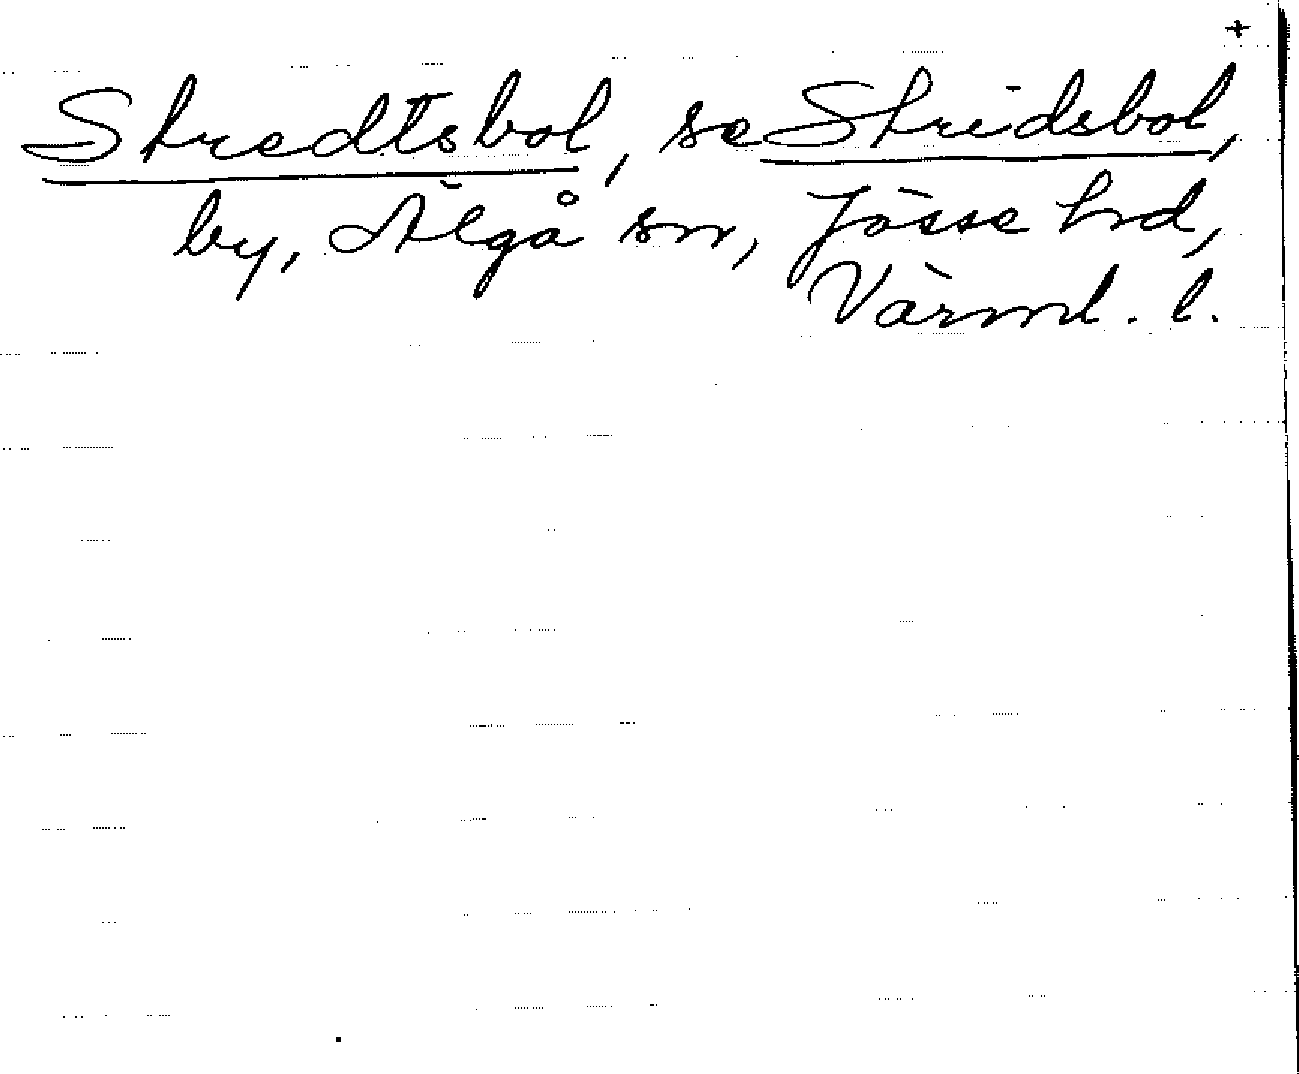 +
Skredtsbol, se Skridsbol,
by, Älgå sn, Jösse hd,
Värml. l.